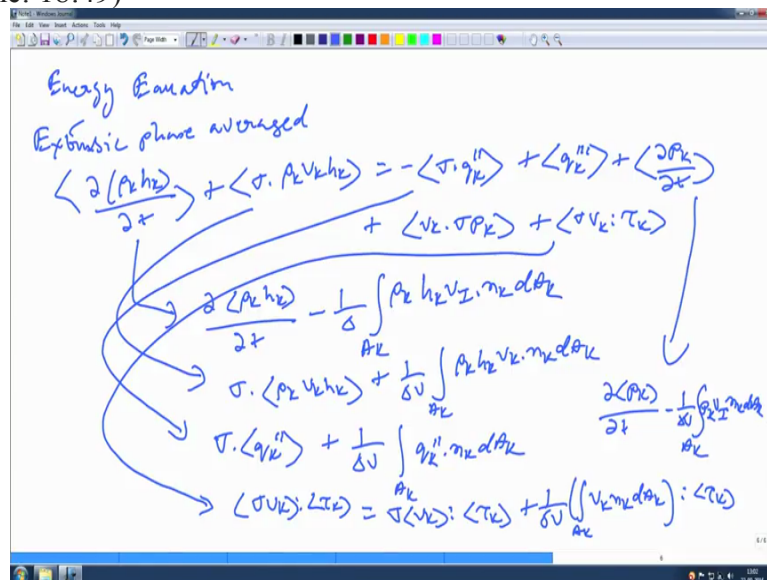 Note1 - Windows Journal
File Edit View Insert Actions Tools Help
Page Width
Energy Equation
Extensic phase averaged
⟨∂(ρₖhₖ)/∂t⟩ + ⟨∇·ρₖVₖhₖ⟩ = -⟨∇·qₖ''⟩ + ⟨qₖ'''⟩ + ⟨∂Pₖ/∂t⟩
+ ⟨Vₖ·∇Pₖ⟩ + ⟨∇Vₖ:τₖ⟩
∂⟨ρₖhₖ⟩/∂t - 1/Δ ∫_Aₖ ρₖhₖV_I·nₖdAₖ
∇·⟨ρₖVₖhₖ⟩ + 1/ΔV ∫_Aₖ ρₖhₖVₖ·nₖdAₖ
∂⟨Pₖ⟩/∂t - 1/ΔV ∫_Aₖ PₖV_I·nₖdAₖ
∇·⟨qₖ''⟩ + 1/ΔV ∫_Aₖ qₖ''·nₖdAₖ
⟨∇Vₖ⟩:⟨τₖ⟩ = ∇⟨Vₖ⟩:⟨τₖ⟩ + 1/ΔV (∫_Aₖ VₖnₖdAₖ):⟨τₖ⟩
6/6
6
13:02